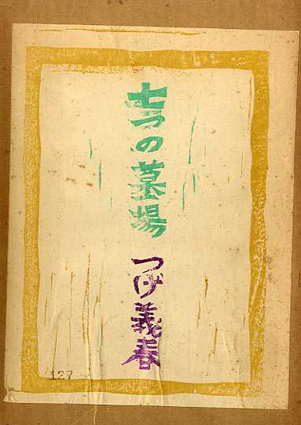 七つの墓場
つげ義春
127